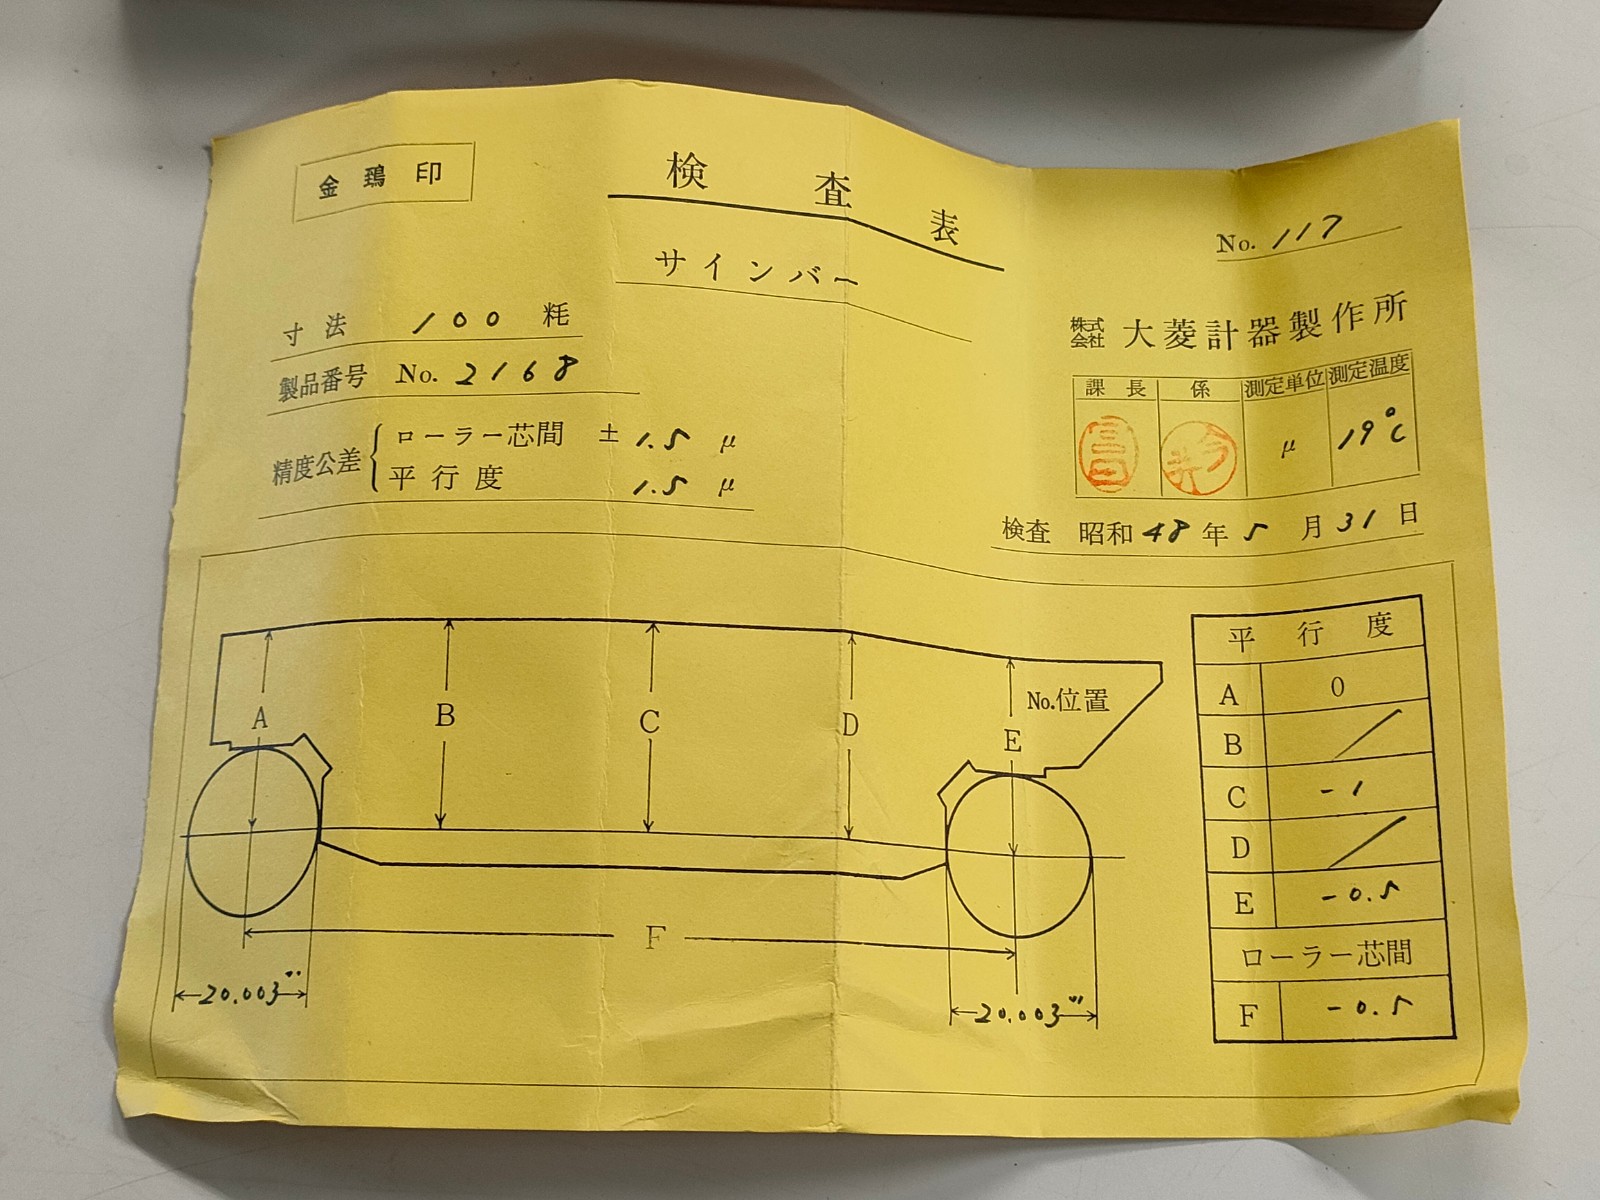 金鵄印
検査表
サインバー
No. 117
寸法 100 粍
製品番号 No. 2168
精度公差
ローラー芯間 ± 1.5 μ
平行度 1.5 μ
株式会社 大菱計器製作所
課長 係 測定単位 測定温度
μ 19°C
検査 昭和48年5月31日
A B C D E
No.位置
F
20.003
20.003
平行度
A 0
B /
C -1
D /
E -0.5
ローラー芯間
F -0.5